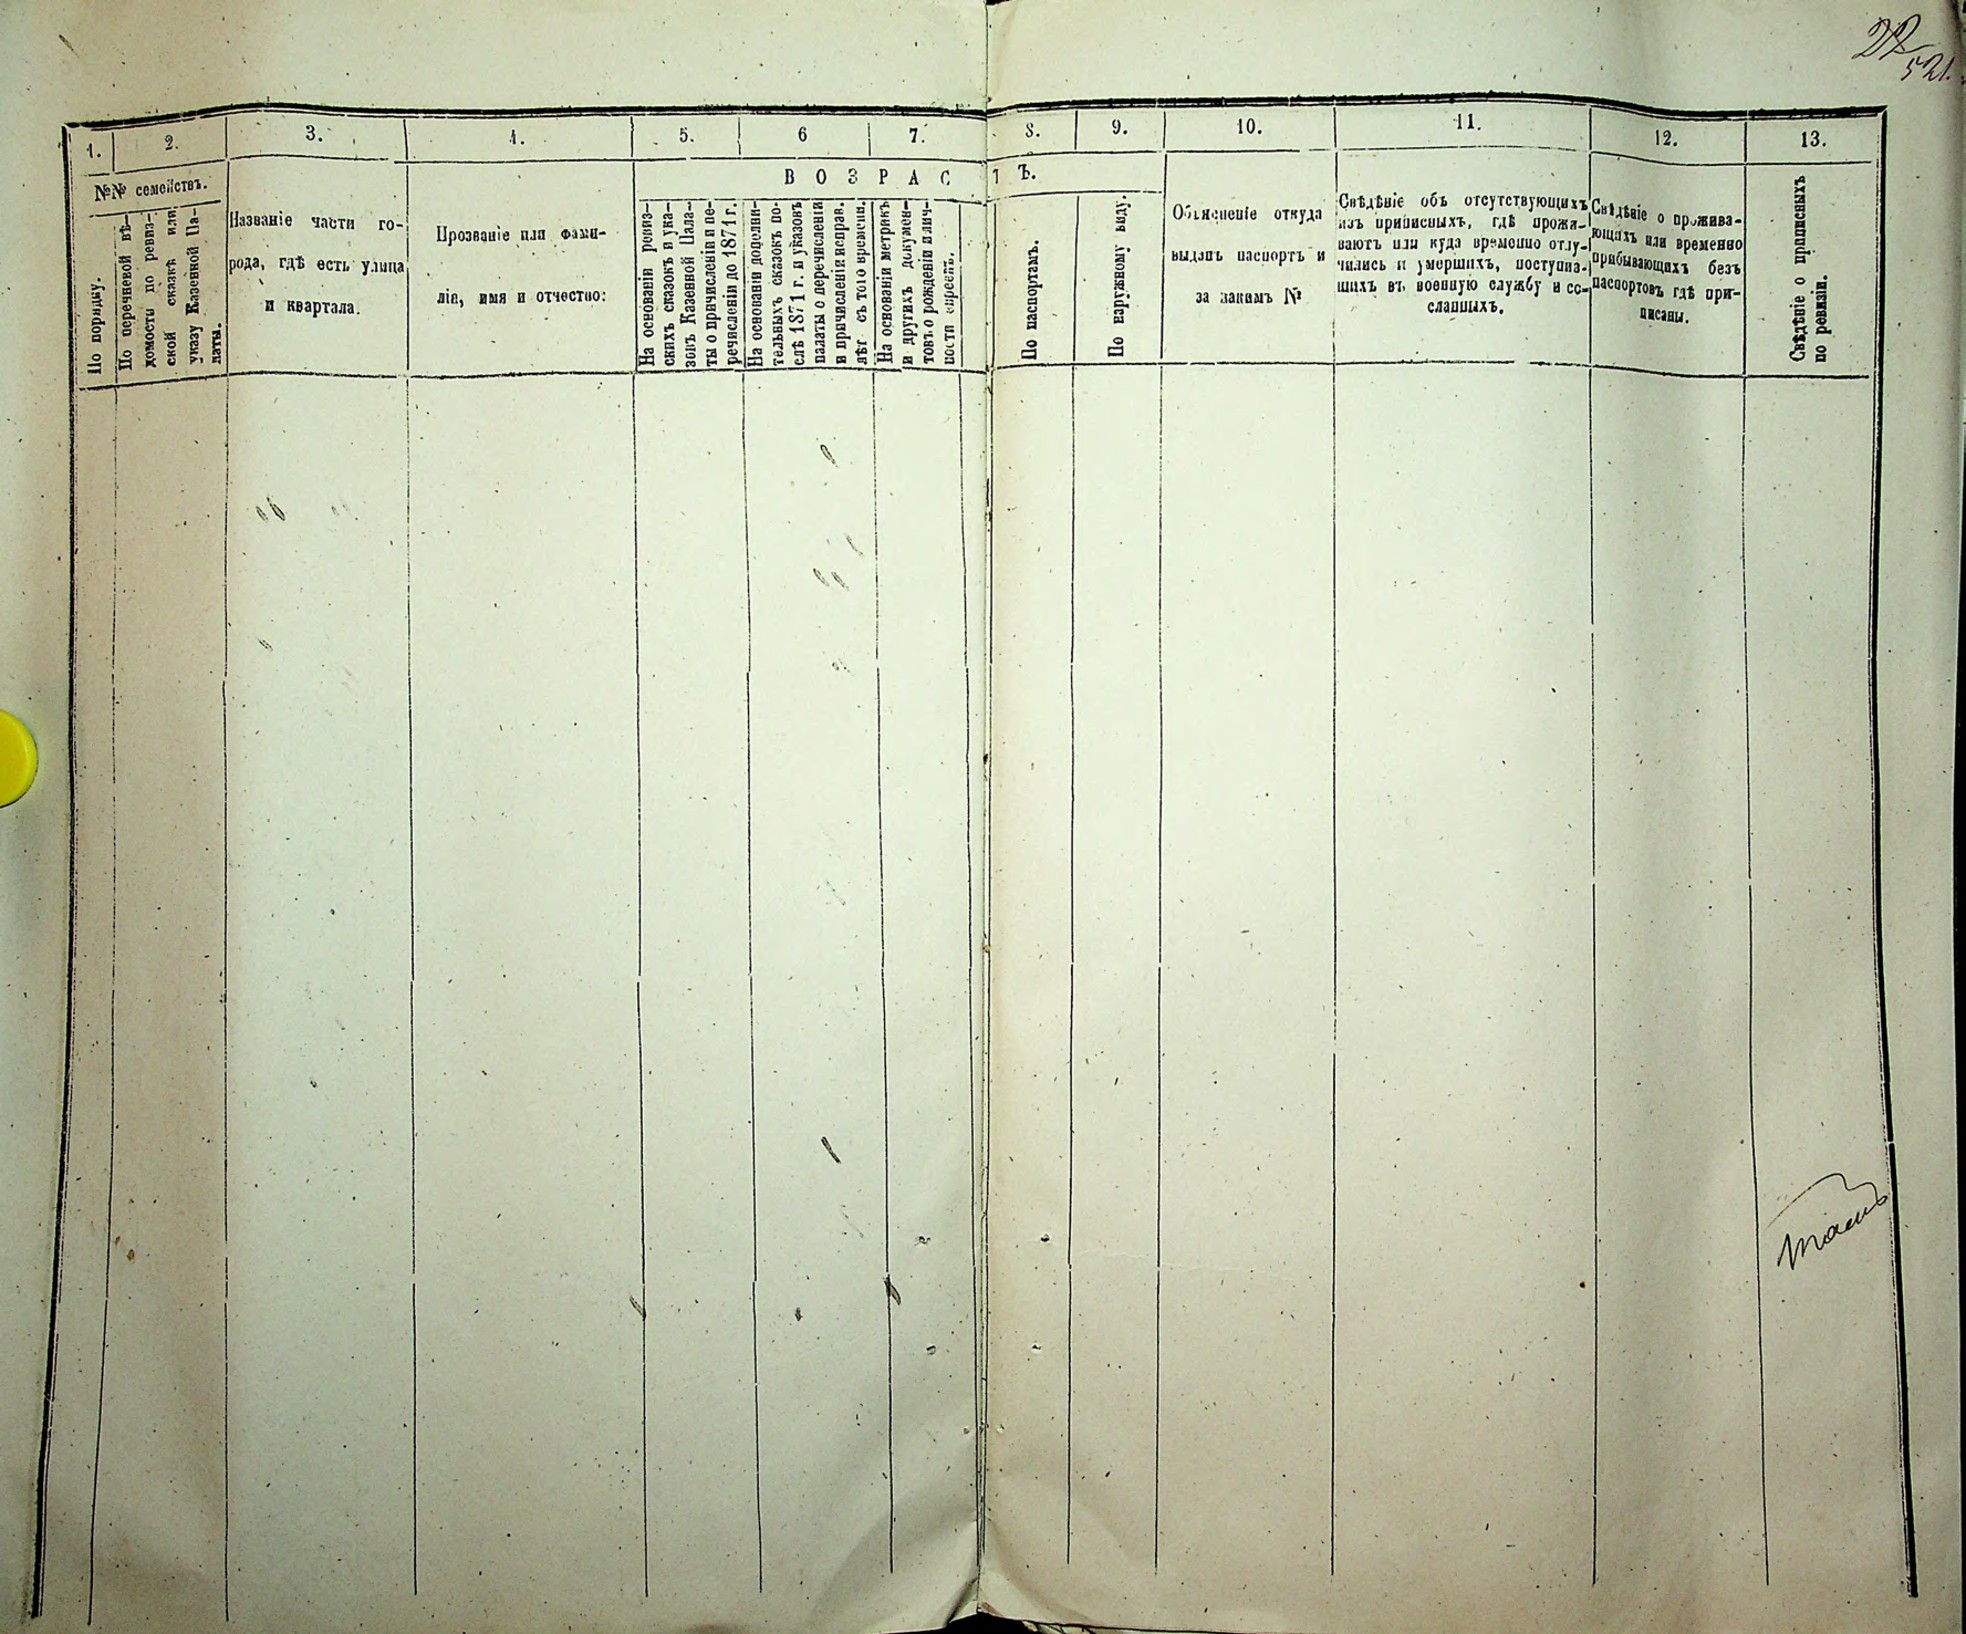 521.
1. 2. 3. 4. 5. 6 7. 8. 9. 10. 11. 12. 13.
ВОЗРАСТЪ.
№№ семействъ.
По порядку.
По перечневой вѣ-
домости по ревиз-
ской сказкѣ или
указу Казенной Па-
латы.
Названіе части го-
рода, гдѣ есть улица
и квартала.
Прозваніе или фами-
лія, имя и отчество:
На основаніи ревиз-
скихъ сказокъ и ука-
зовъ Казенной Пала-
ты о причисленіи и пе-
речисленіи до 1871 г.
На основаніи дополни-
тельныхъ сказокъ по-
слѣ 1871 г. и указовъ
палаты о перечисленіи
и причисленіи исправ.
лѣт съ того времени.
На основаніи метрикъ
и другихъ докумен-
товъ о рожденіи и лич-
ности евреевъ.
По паспортамъ.
По наружному виду.
Объясненіе откуда
выданъ паспортъ и
за какимъ №
Свѣдѣніе объ отсутствующихъ
изъ приписныхъ, гдѣ прожи-
ваютъ или куда временно отлу-
чились и умершихъ, поступив-
шихъ въ военную службу и со-
сланныхъ.
Свѣдѣніе о прожива-
ющихъ или временно
прибывающихъ безъ
паспортовъ гдѣ при-
писаны.
Свѣдѣніе о приписныхъ
по ревизіи.